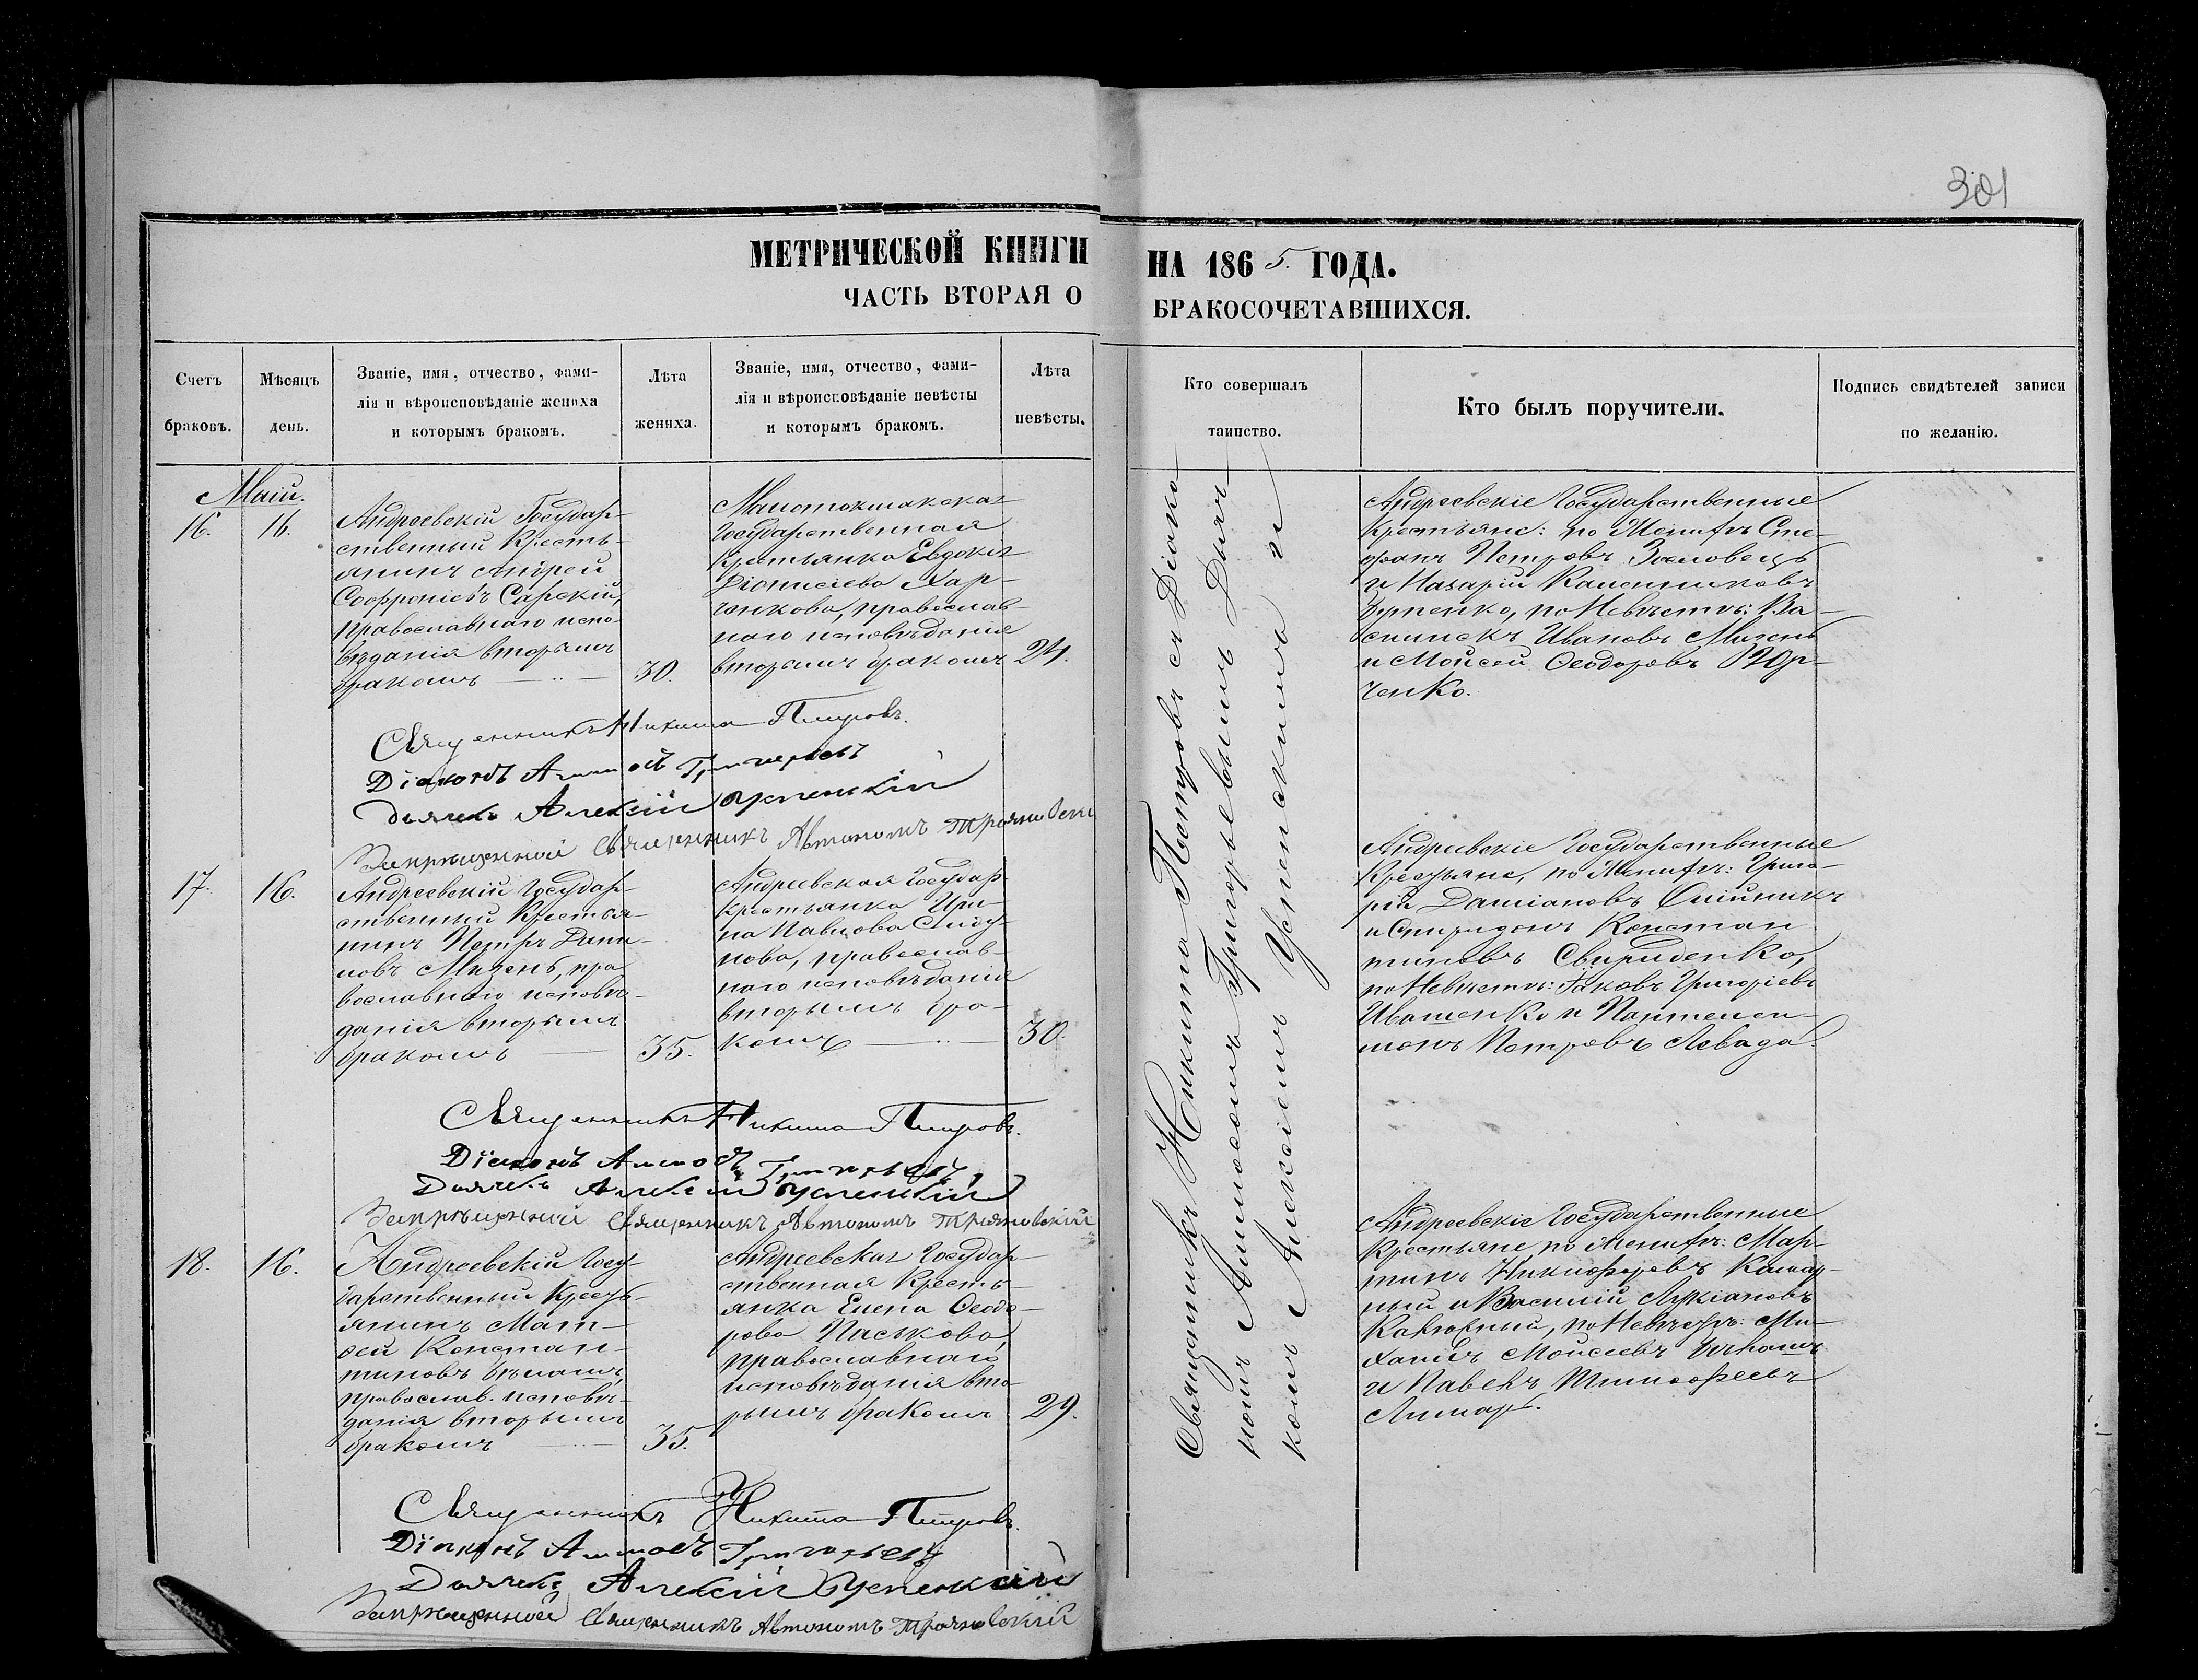 301
МЕТРИЧЕСКОЙ КНИГИ НА 1865. ГОДА.
ЧАСТЬ ВТОРАЯ О БРАКОСОЧЕТАВШИХСЯ.
Счетъ
браковъ.
Мѣсяцъ
день.
Званіе, имя, отчество, фами-
лія и вѣроисповѣданіе жениха
и которымъ бракомъ.
Лѣта
жениха.
Званіе, имя, отчество, фами-
лія и вѣроисповѣданіе невѣсты
и которымъ бракомъ.
Лѣта
невѣсты.
Кто совершалъ
таинство.
Кто былъ поручители.
Подпись свидѣтелей записи
по желанію.
Маій.
16.
16.
Андреевскій Государ-
ственный Кресть-
янинъ Андрей
Софроніевъ Сарскій,
православнаго испо-
вѣданія вторымъ
бракомъ
30.
Государственная
Крестьянка Евдокія
Діонисіева Хар-
ченкова, православ-
наго исповѣданія
вторымъ бракомъ
24.
Священникъ Никита Петровъ съ Діако-
номъ Аммосомъ Григорьевымъ Дьяч-
комъ Алексіемъ Успенскимъ и
Андреевскіе Государственные
Крестьяне: по Женихѣ Сте-
фанъ Петровъ
и Назарій Каленниковъ
по Невѣстѣ: Ва-
силискъ Ивановъ Мизень
и Мойсей Ѳеодоровъ Юр-
ченко.
Священникъ Никита Петровъ.
Діаконъ Аммосъ Григорьевъ
Дьячекъ Алексій Успенскій
Запрещенной Священникъ Автономъ
17.
16.
Андреевскій Государ-
ственный Крестья-
нинъ Петръ Дани-
ловъ Мизень, пра-
вославнаго исповѣ-
данія вторымъ
бракомъ
35.
Андреевская Государ.
Крестьянка Ири-
на Павлова
нова, православ-
наго исповѣданія
вторымъ бра-
комъ
30.
Андреевскіе Государственные
Крестьяне, по Женихѣ: Григо-
рій Даміановъ Олійникъ
и Спиридонъ Констан
тиновъ Свириденко,
по Невѣстѣ: Іаковъ Григоріевъ
Ивашенко и Пантелеи-
монъ Петровъ Левада.
Священникъ Никита Петровъ.
Діаконъ Аммосъ Григорьевъ,
Дьячекъ Алексій Успенскій
Запрещенной Священникъ Автономъ Трояновскій
18.
16.
Андреевскій Госу-
дарственный Кресть-
янинъ Мат-
ѳей Констан-
тиновъ
православ. исповѣ-
данія вторымъ
бракомъ
35.
Андреевская Государ-
ственная Кресть-
янка Елена Ѳеодо-
рова Паськова,
православнаго
исповѣданія вто-
рымъ бракомъ
29.
Андреевскіе Государственные
Крестьяне, по Женихѣ: Мар-
тинъ Никифоровъ Комар-
ный и Василій Лукіановъ
по Невѣстѣ: Ми-
хаилъ Моисеевъ
и Павелъ Тимоѳеевъ
Лимарь.
Священникъ Никита Петровъ.
Діаконъ Аммосъ Григорьевъ
Дьячекъ Алексій Успенскій
Запрещенной Священникъ Автономъ Трояновскій